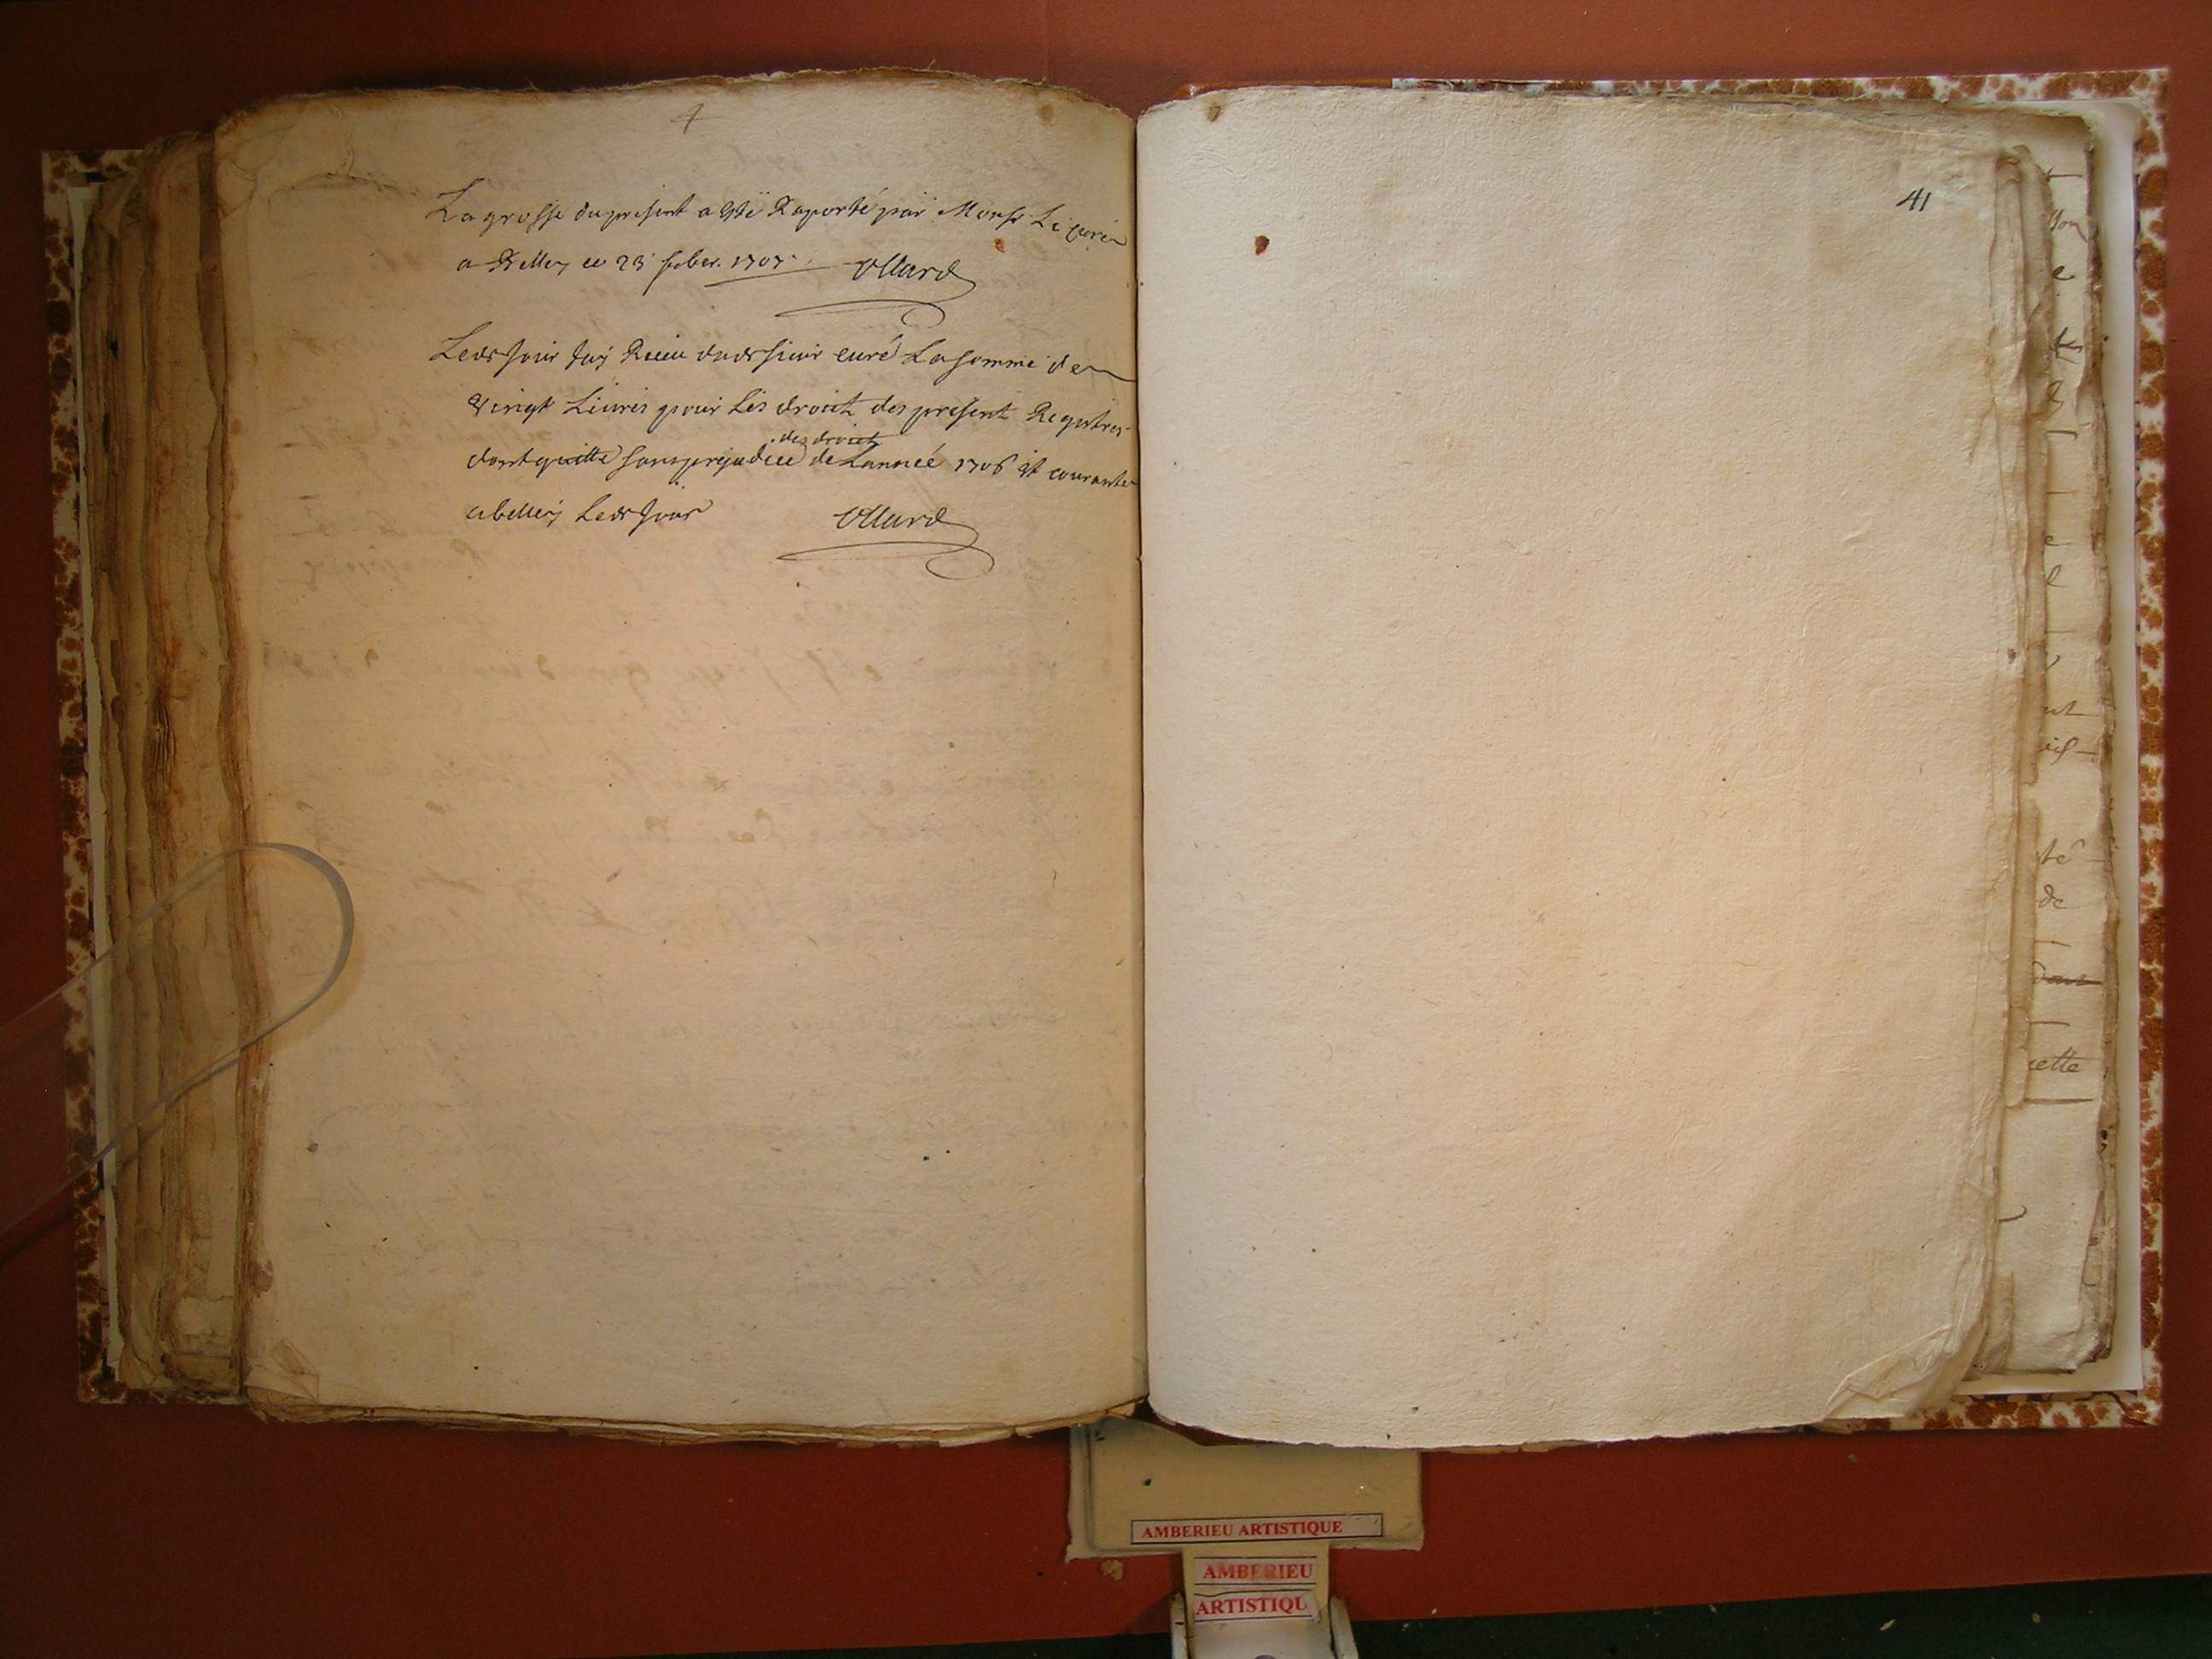 4
La grosse du present a esté Raporté par Monsr Le curé
a Belley ce 23 1707 Ollard
Ledt Jour Jay Receu dudt sieur curé La somme de
Vingt Livres pour Les droict des present Registres
des droict
dont quitte sans prejudice de Lanneé 1706 et courante
a belley Ledt Jour Ollard
41
te
de
cette
AMBERIEU ARTISTIQUE
AMBERIEU
ARTISTIQU